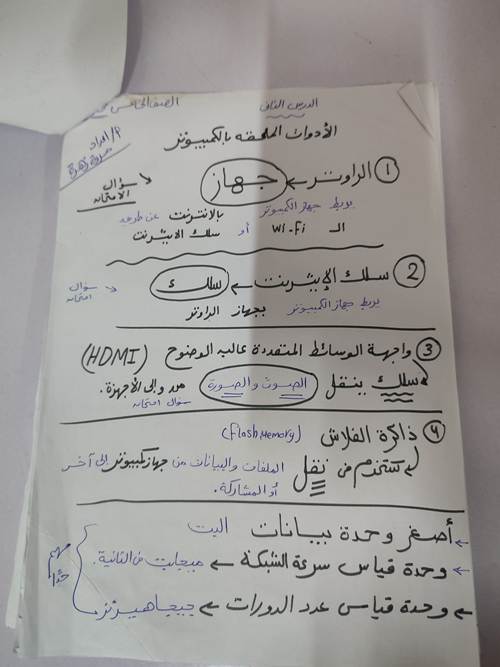 الدرس الثاني
الصف الخامس
الأدوات الملحقه بالكمبيوتر
م/اعداد
① الراوتر ← جهاز
سؤال
الامتحان
يربط جهاز الكمبيوتر بالانترنت عن طريق
الـ Wi-Fi أو سلك الايثرنت
② سلك الإيثرنت ← سلك
سؤال
امتحان
يربط جهاز الكمبيوتر بجهاز الراوتر
③ واجهة الوسائط المتعددة عالية الوضوح (HDMI)
سلك ينقل الصوت والصورة من وإلى الأجهزة.
سؤال امتحان
④ ذاكرة الفلاش (Flash Memory)
تستخدم في نقل الملفات والبيانات من جهاز كمبيوتر إلى آخر
أو المشاركة.
← أصغر وحدة بيانات البت
← وحدة قياس سرعة الشبكة ← ميجابت في الثانية.
← وحدة قياس عدد الدورات ← جيجاهيرتز
مهم
جدًا